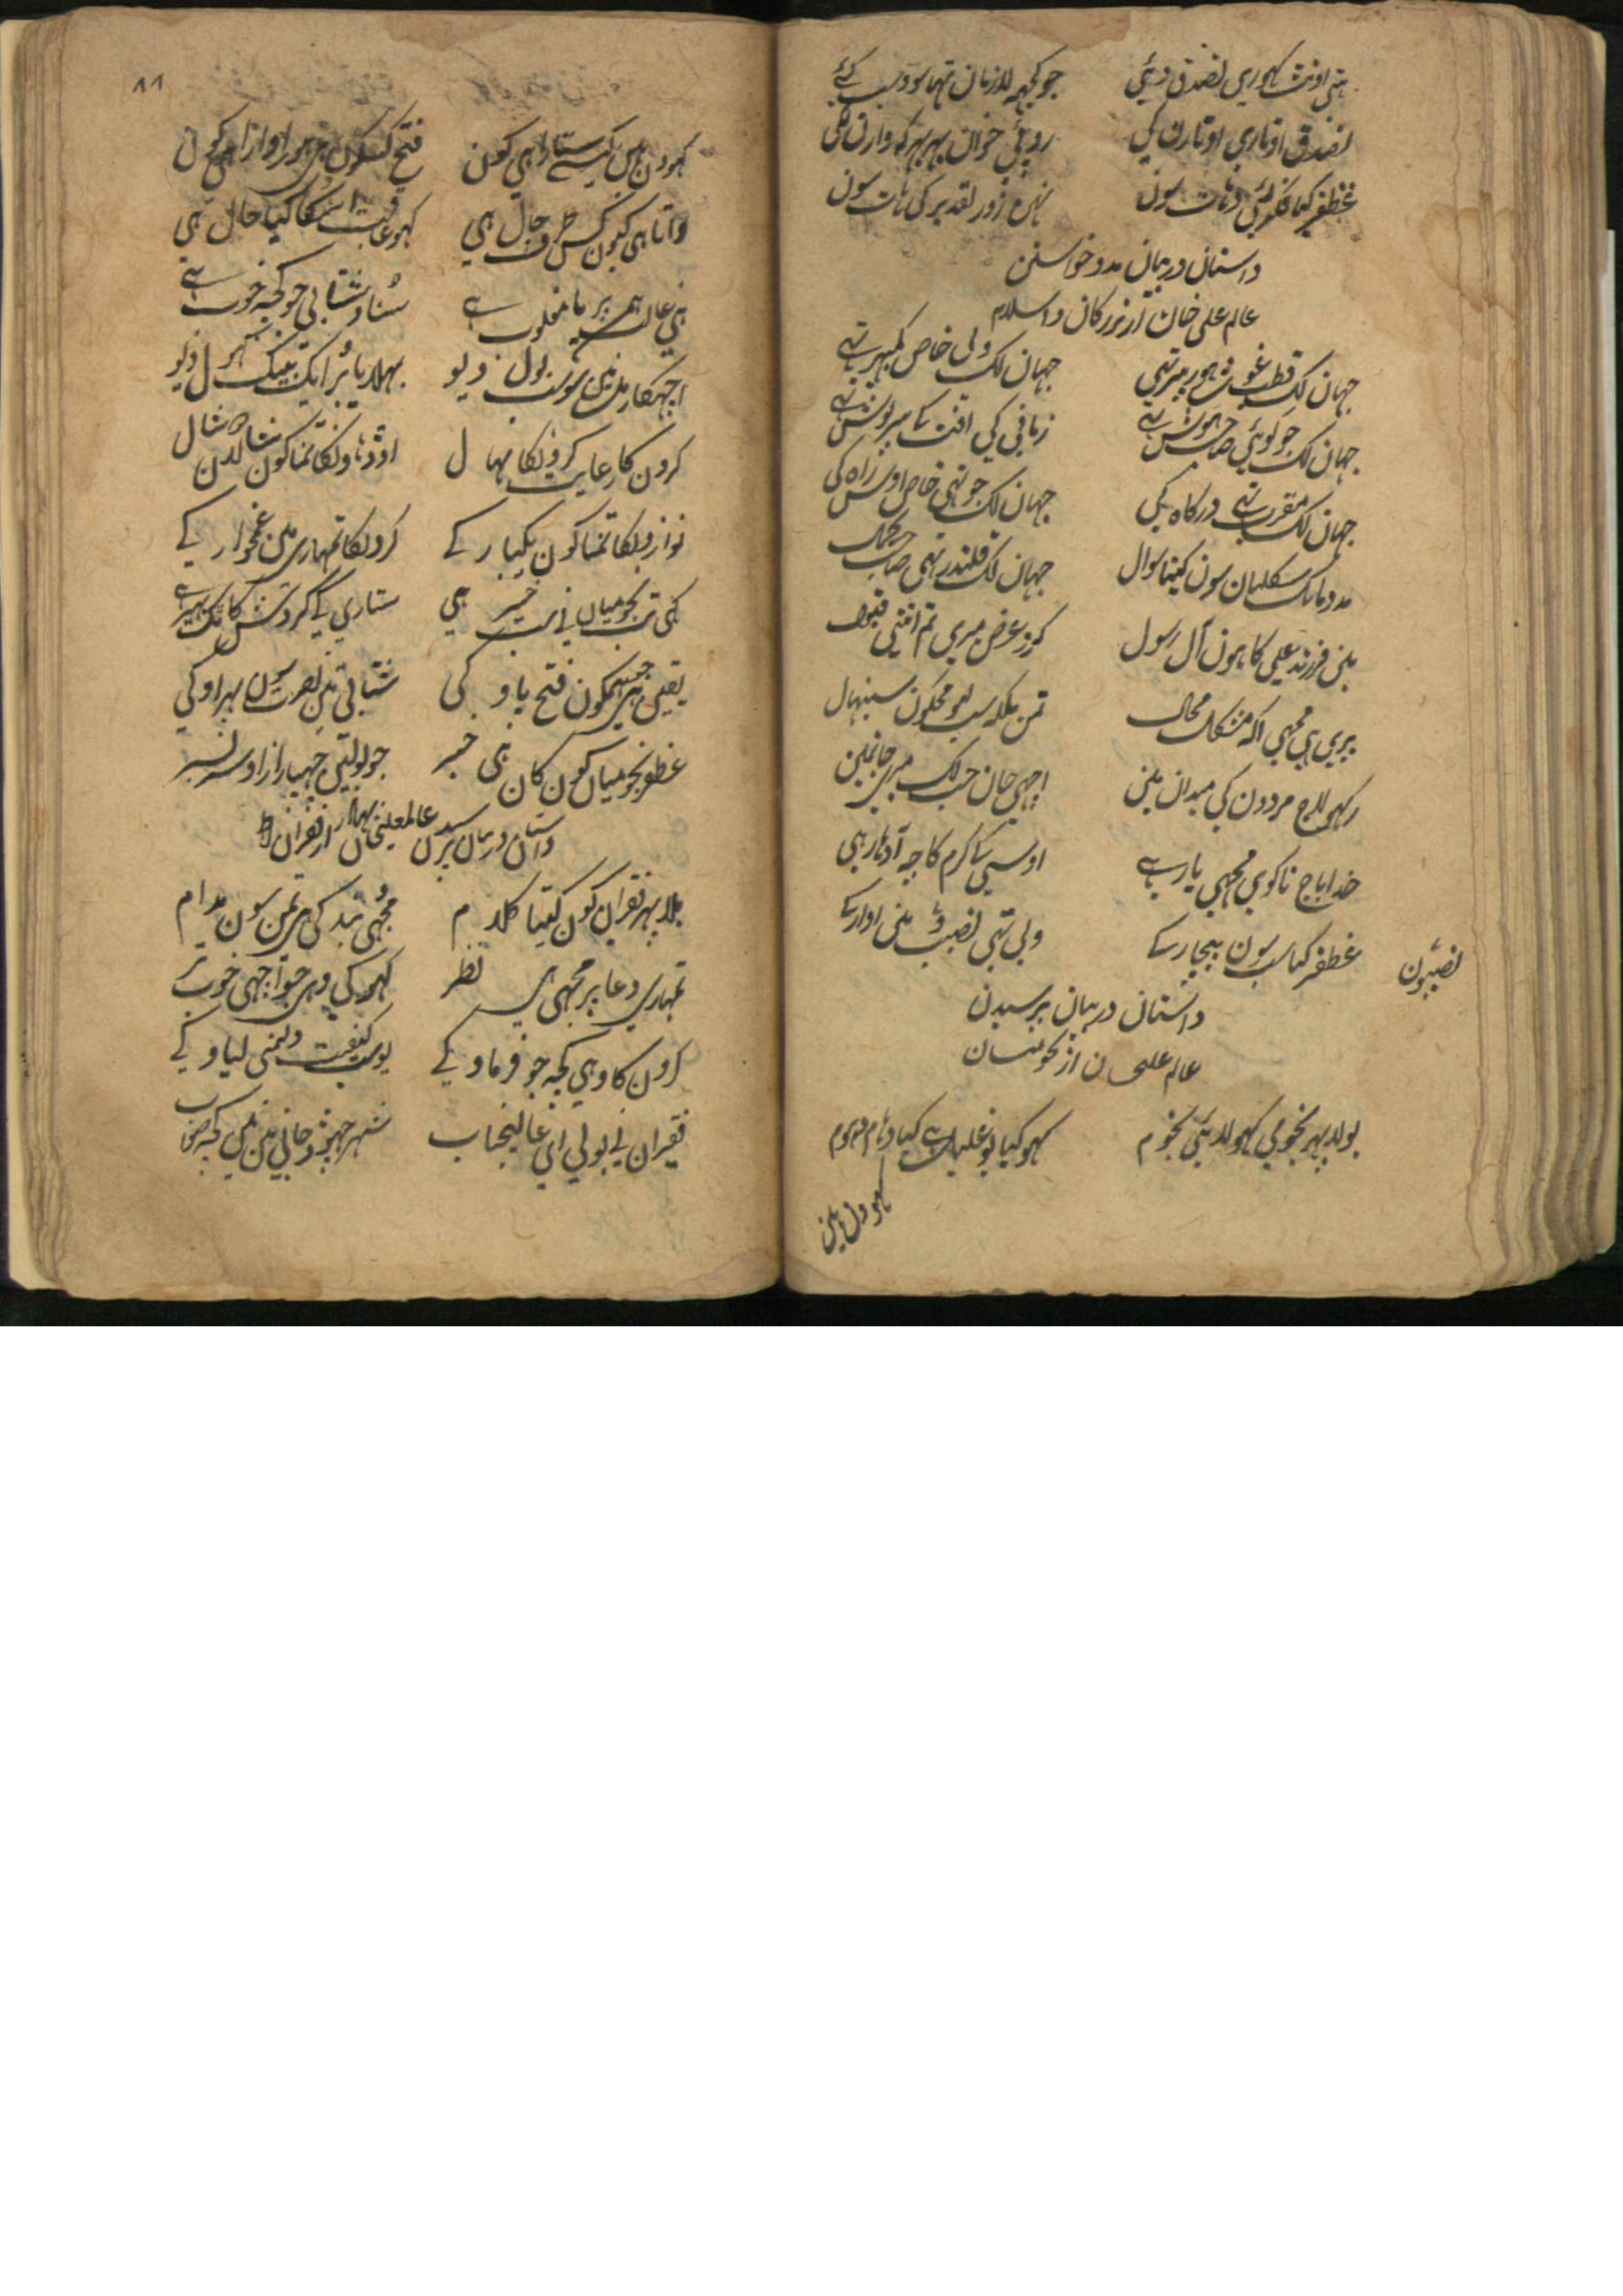 ہتی اونٹ کہوری تصدق دئیی جو کجہہ لازمان تہا سو وو سب کئے
تصدق اوتاری اوتارن کی روپئی خوان بہر بہر کہ وارن لکی
غظفر کیا فکر کئی دہات سون نہین زور تقدیر کی ہات سون
داستان در بیان مدد خواستن
عالم علی خان از بزرکان و اسلام
جہان لک قطب غوث ہور پیر تہی جہان لک ولی خاص کمبہیر تہے
جہان لک جو کوئی صاحب ہوش تہے زمانی کی افت کے سرپوش تہے
جہان لک مقرب تہے درکاہ کی جہان لک جو تہی خاص اوس راہ کی
مدد مانک سکلیان سون کیتا سوال جہان لک قلندر تہی صاحب کمال
مین فرزند علی کا ہون آل رسول کرو عرض میری تم اتنی قبول
پری ہی مجہی اکہ مشکل محال تمن ملکہ سب لیو مجکون سنبہال
رکہی لاج مردون کی میدان مین اچہی جان جب لک میری جان مین
خدا باج نا کوی مجہی یار ہے اوسی کا کرم کا چہ آدہار ہی
غظفر کیا سب سون بیچار کے ولی تہی نصیب وئی اوار کے
نصیبون
داستان در بیان پرسیدن
عالم علی خان از نجومیان
بولا پہر نجومی کہولا یئی نجوم کہو کیا یو غلیان ہے کیا دہام دہوم
کہو دن مین
کہو دن ہین کیسے ستارا ہی کون فتح کسکون ہی ہور اوازا ہی کون
وتا ہی کیون کس طرف چال ہی کہو عاقبت اسکا کیا حال ہی
ہنی غالب ہمپر یا مغلوب ہے سناو شتابی جو کجہ خوب ہے
اچہکا دل مین سو سب بول دیو بہلا یا برا ایک بینک کہول دیو
کرون کا رعایت کرونکا نہال اوڈہاونکا تمناکون شالان دشال
نوازونکا تمناکون یکبار کے کرونکا تمہاری مین غمخوار کے
کہی تب نجومیان نی سب خبر ہی ستاری کے کردش کا تک پہیر ہے
یقین ہی ہمیکون فتح پاو کی شتابی تمن نصرت سون بہر اوکی
غظفر نجومیان کون کان ہی خبر جو بولتی چہپا راز اوسر بسر
داستان در بیان پرسیدن عالم علیخان بہادر از فقران
بلا پہر فقران کون کیتا کلام مجہی بندکی ہی تمن سون مدام
تمہاری دعا پر مجہی ہی نظر کہو کی وہی جو اچہی خوب تر
کرون کا وہی کجہ جو فرماو کے یو سب کیفیت دل منی لیاو کے
فقیران نے بولی ای عالیجناب شہر چہوڑ جانی مین نین کجہ صواب
۸۸